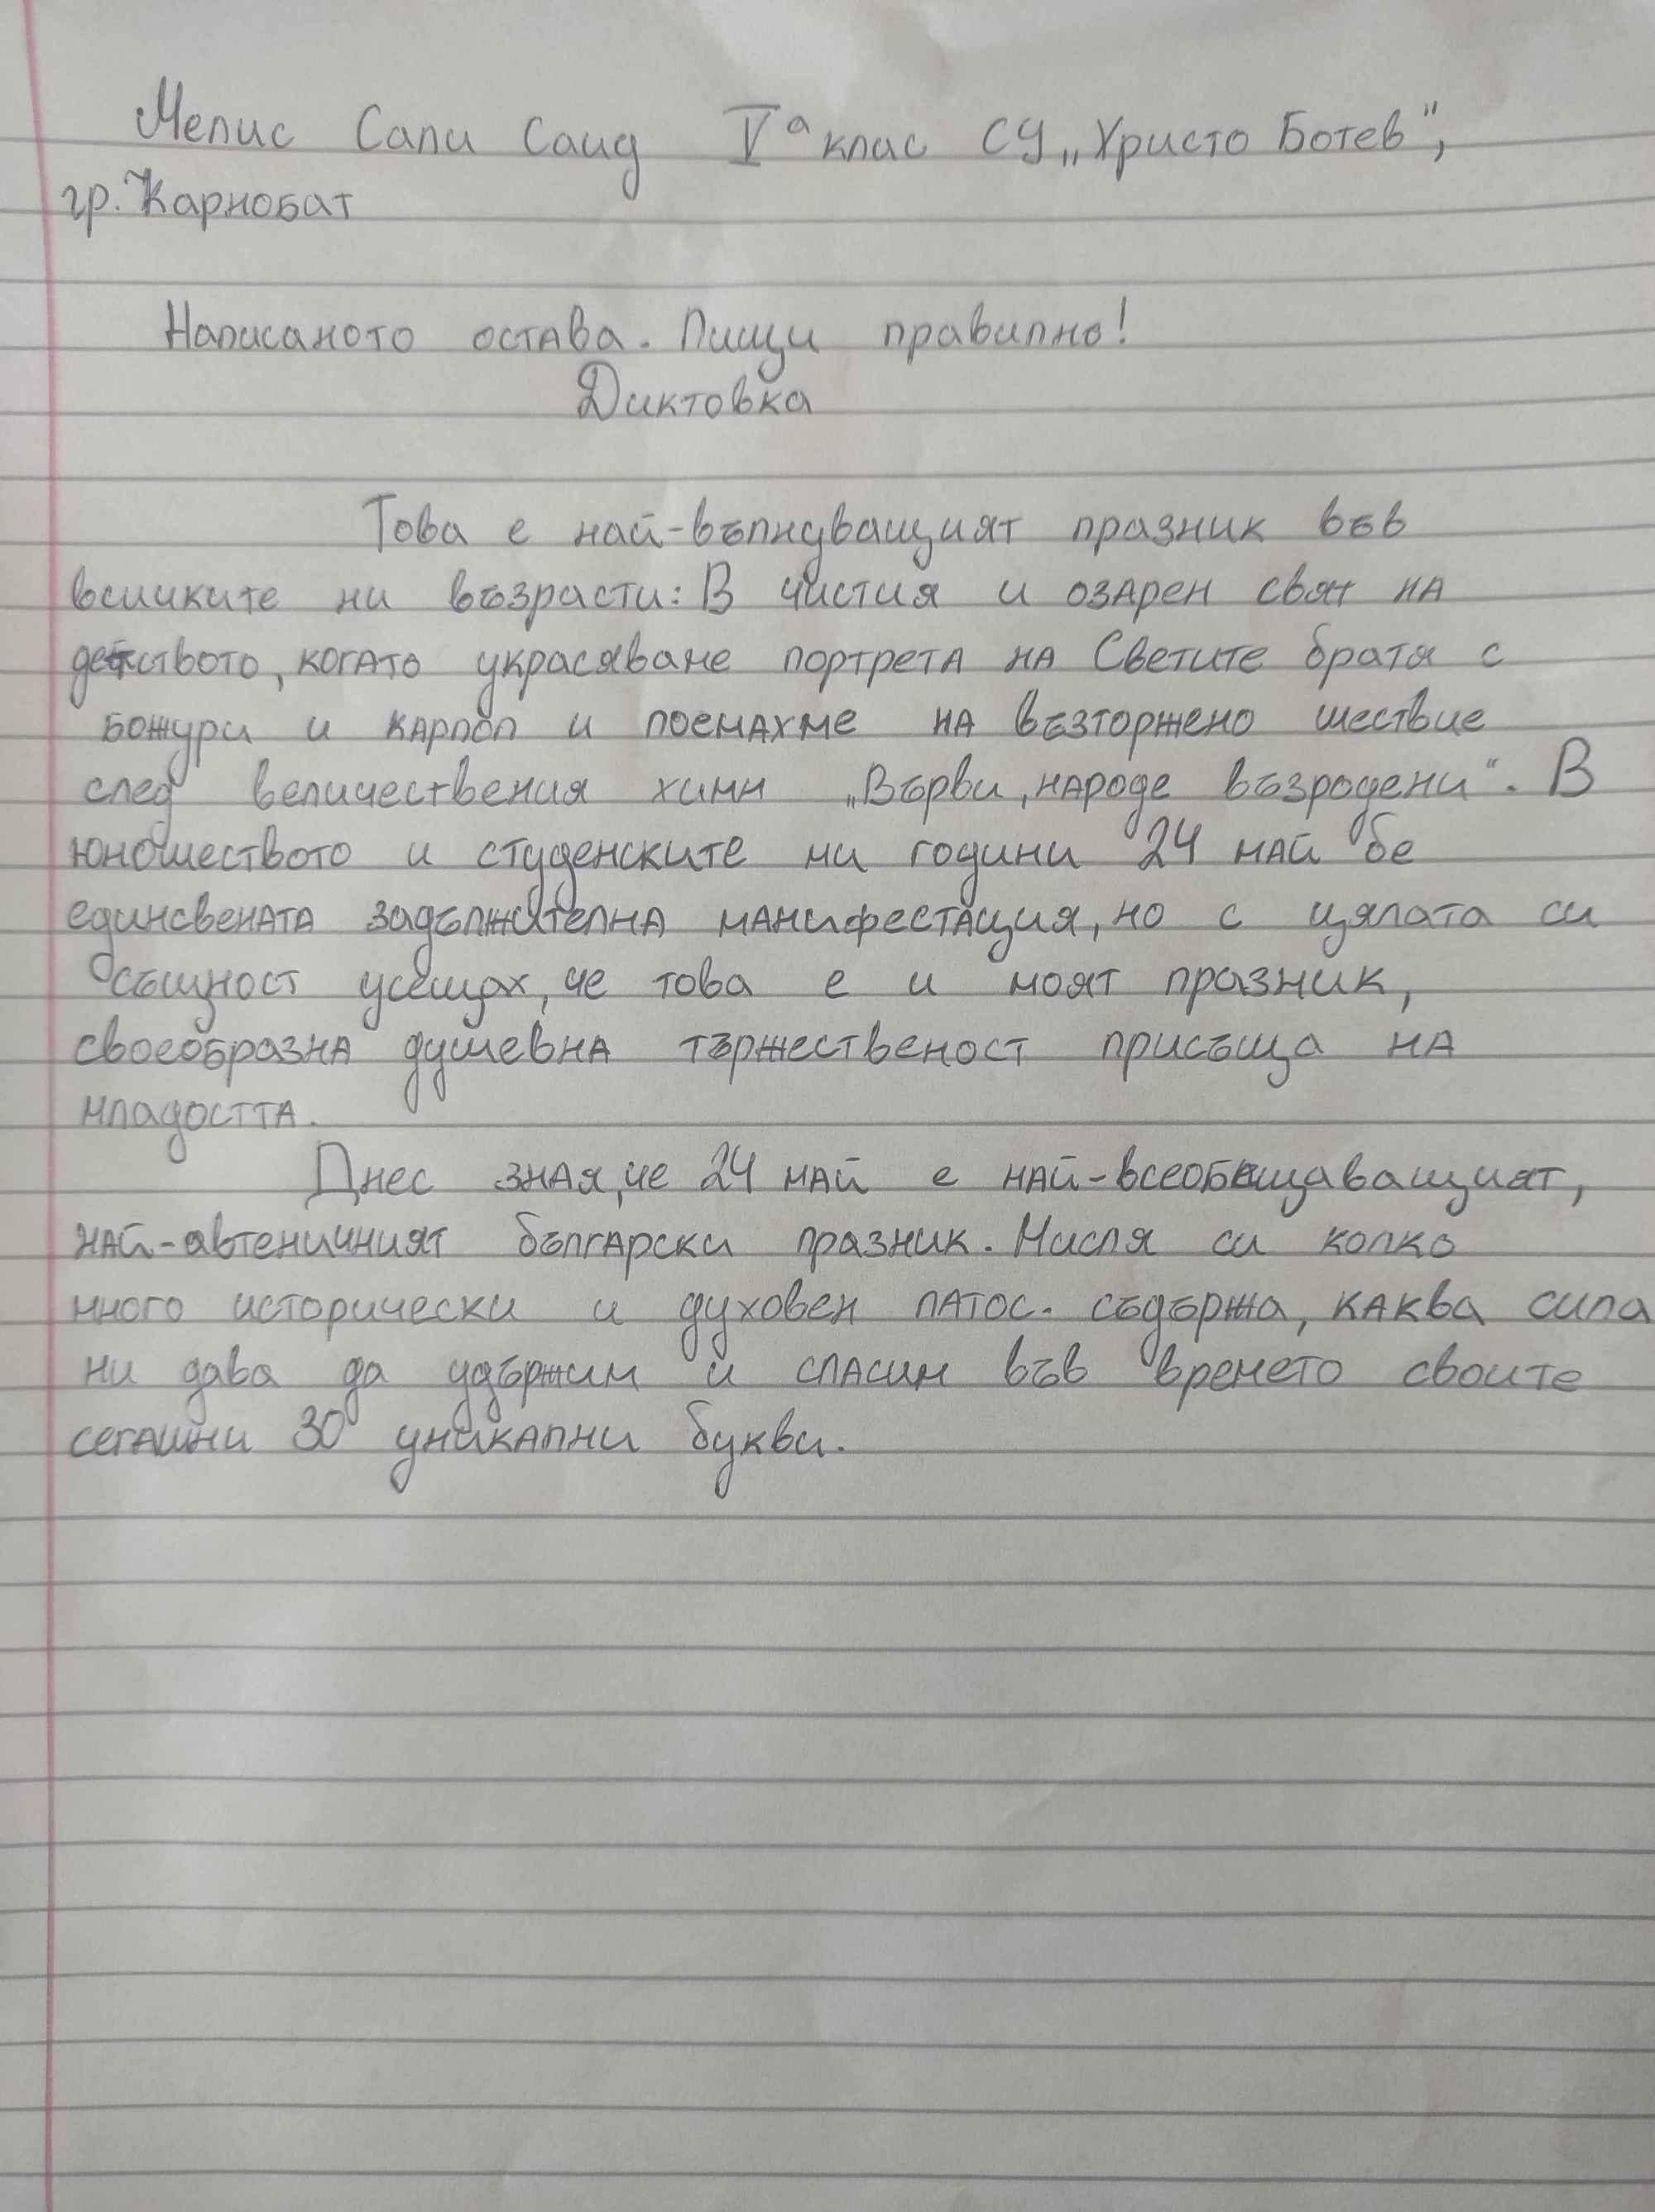 Мелис Сали Саид V а клас СУ „Христо Ботев",
гр. Карнобат
Написаното остава. Пищи правилно!
Диктовка
Това е най-вълнуващият празник във
всичките ни възрасти: В чистия и озарен свят на
детството, когато украсяване портрета на Светите братя с
божури и карлол и поемахме на възторжено шествие
след величествения химн „Върви, народе възродени“. В
юношеството и студенските ми години 24 май бе
единсвената задължителна манифестация, но с цялата си
същност усещах, че това е и моят празник,
своеобразна душевна тържественост присъща на
младостта.
Днес зная, че 24 май е най-всеобещаващият,
най-автеничният български празник. Мисля си колко
много исторически и духовен патос. съдържа, каква сила
ни дава да удържим и спасим във времето своите
сегашни 30 уникални букви.